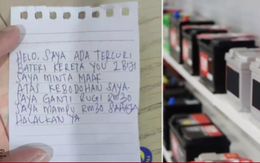 HELO, SAYA ADA TERCURI
BATERI KERETA YOU 2 BIJI
SAYA MINTA MAAF
ATAS KEBODOHAN SAYA.
SAYA GANTI RUGI RM30
SAYA MAMPU RM30 SAHAJA
HALALKAN YA